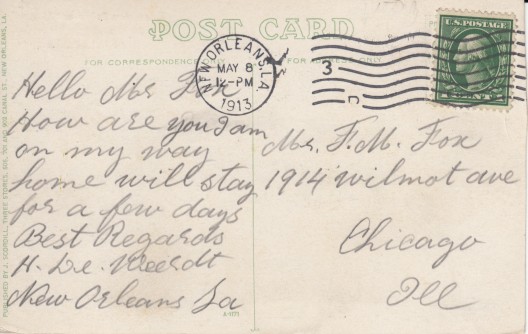 POST CARD
FOR CORRESPONDENCE ONLY
FOR ADDRESS ONLY
NEW ORLEANS, LA
MAY 8
12-PM
1913
3
U.S. POSTAGE
Hello Mr Fox
How are you I am
on my way
home will stay
for a few days
Best Regards
H. De. Weerdt
New Orleans La
Mr. F. M. Fox
1914 Wilmot ave
Chicago
Ill
PUBLISHED BY J. SCORDILL, THREE STORES, NEW ORLEANS, LA